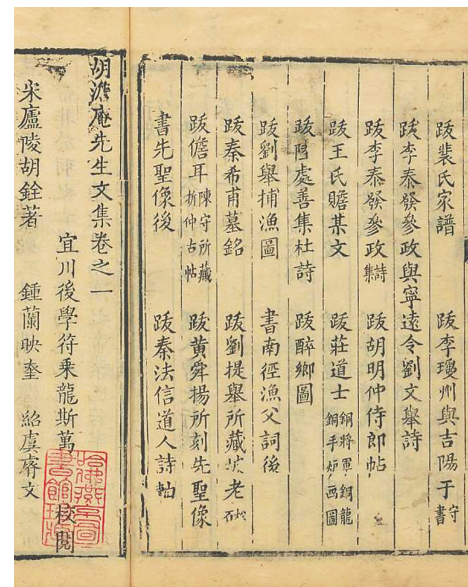 跋裴氏家譜　跋李瓊州與吉陽于守書
跋李泰發參政與寧遠令劉文舉詩
跋李泰發參政詩集　跋胡明仲侍郎帖
跋王氏賸某文　跋莊道士銅將軍銅龍銅手炉画圖
跋陰處善集杜詩　跋醉鄉圖
跋劉舉捕漁圖　書南徑漁父詞後
跋秦希甫墓銘　跋劉提舉所藏老
跋儋耳陳守所藏折仲古帖　跋黃舜揚所刻先聖像
書先聖像後　跋秦法信道人詩軸
胡澹庵先生文集卷之一
宋廬陵胡銓著
宜川後學符乘龍斯萬
鍾蘭映奎
紹虞賡文
校閱